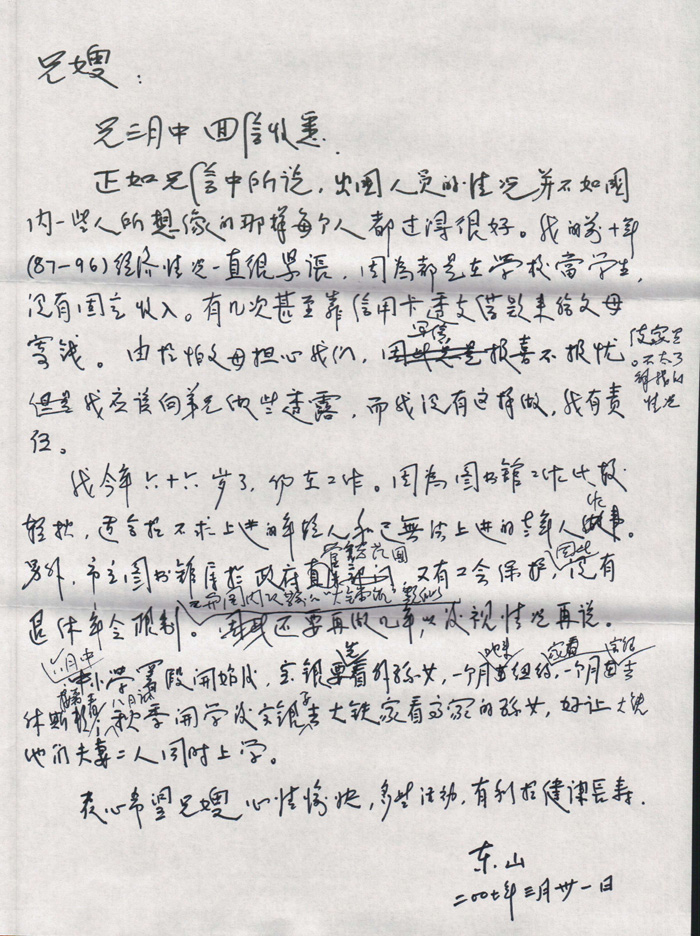 兄嫂：
兄三月中回信收悉．
正如兄信中所说，出国人员的情况并不如国
内一些人所想像的那样每个人都过得很好。我的前十年
(87—96)经济情况一直很紧張，因為都是在学校當学生，
没有固定收入。有几次甚至靠信用卡透支借款来给父母
寄钱。由於怕父母担心我们，写信报喜不报忧
使家里
不太了
解我的
情况
但是我应该向弟兄做些透露，而我没有这样做，我有责
任。
我今年六十六岁了，仍在工作。因為图书館工作比较
轻松，适合於不求上进的年轻人和已無法上进的老年人工作。
另外，市立图书館属於政府管轄范围，又有工会保护，因此没有
退休年令限制。还要再做几年以後視情况再说。
六月中
小学暑假開始後，宝银要先看外孫女，一个月
休斯
八月
秋季開学後宝银去大铁家看的孫女，好让大铁
他们夫妻二人同时上学。
衷心希望兄嫂心情愉快，多些活动，有利於健康長寿．
东山
二00七年三月卅一日